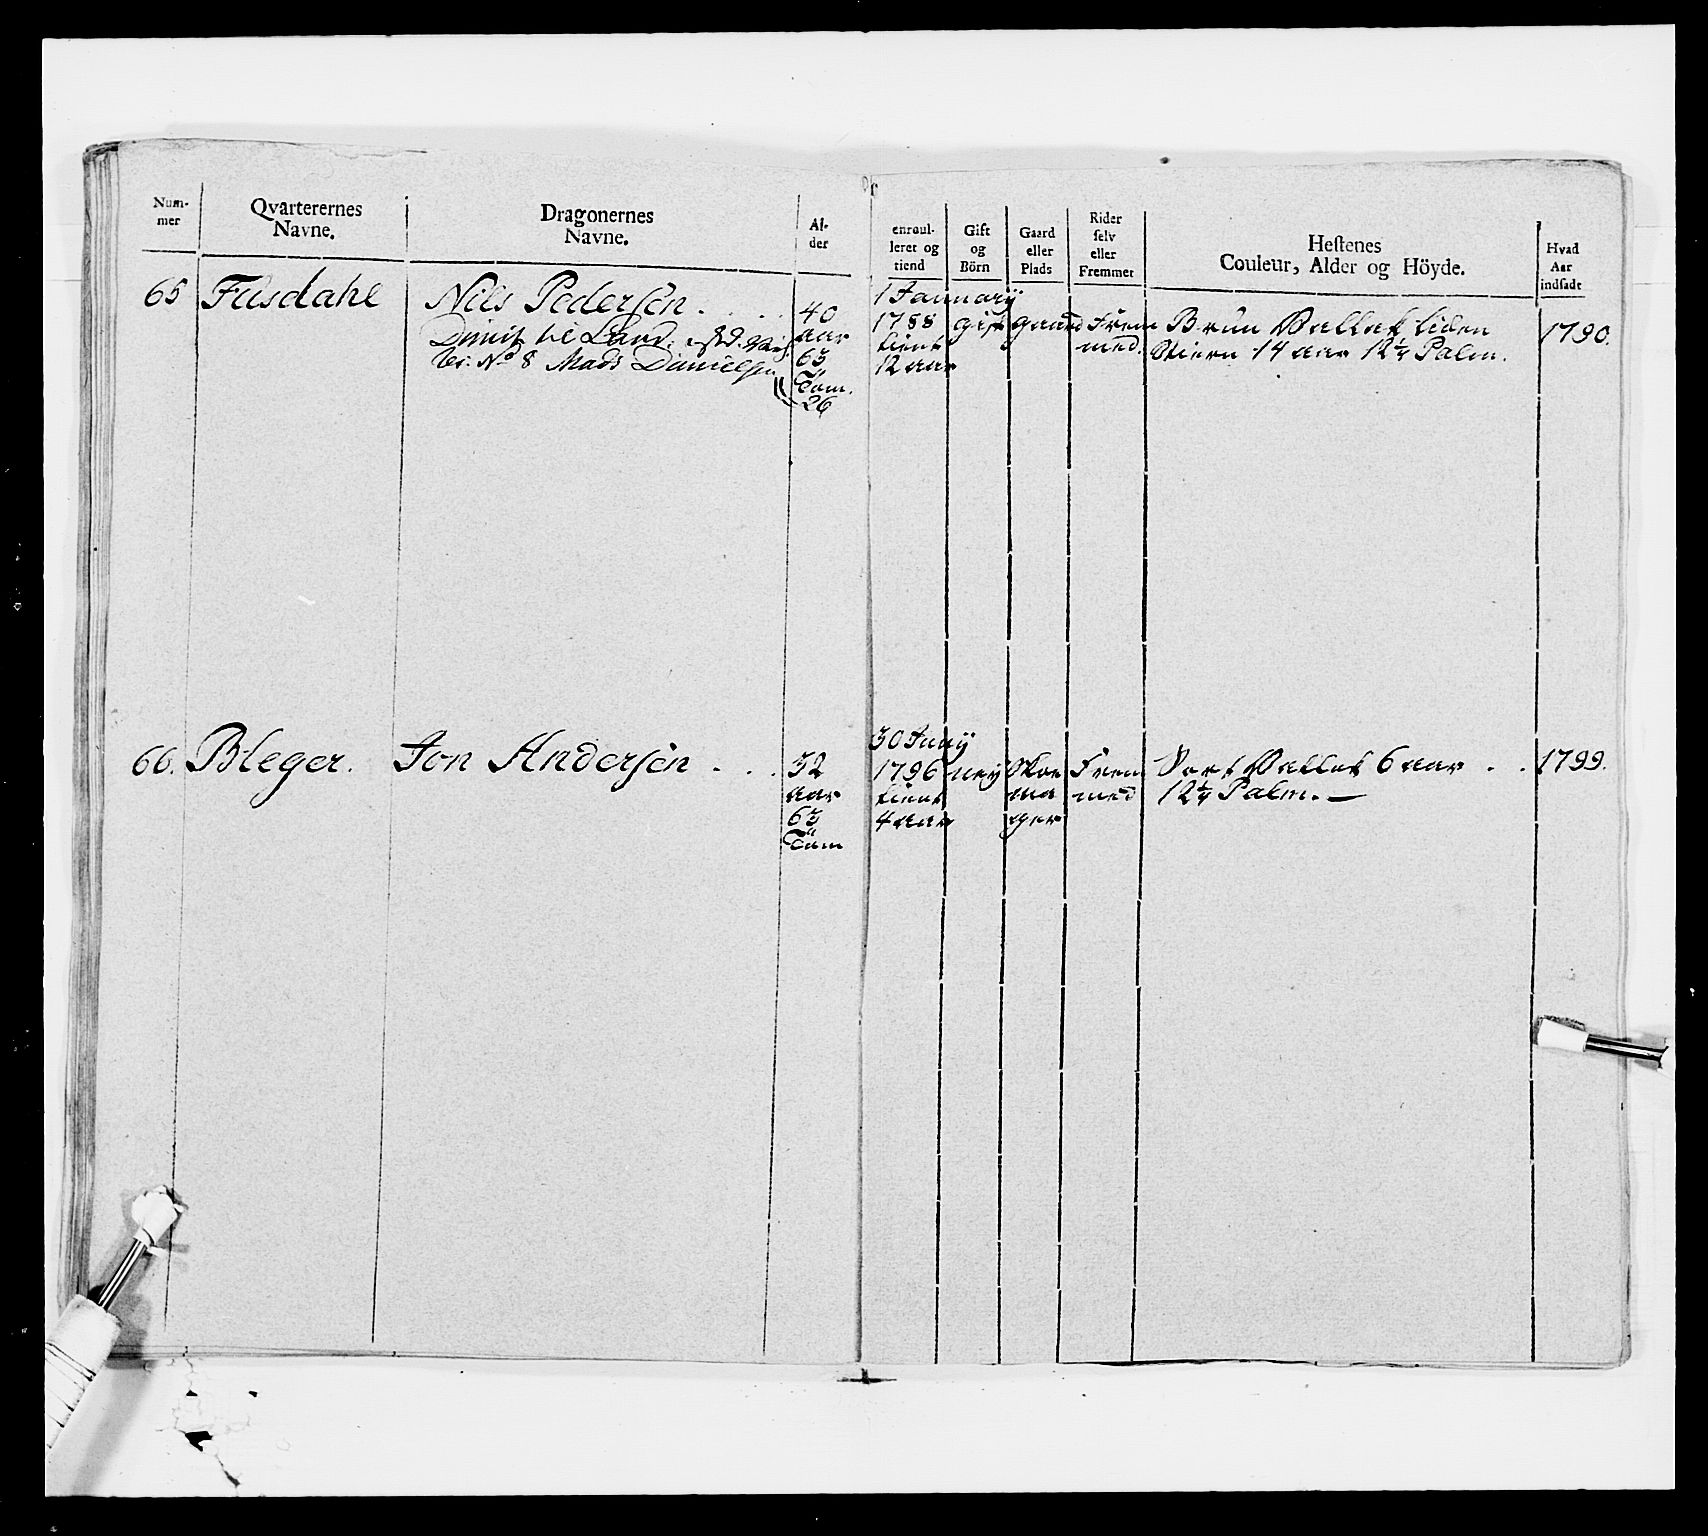 Num-
mer
Qvarterernes
Navne.
Dragonernes
Navne.
Al-
der
enroul-
leret og
tiend
Gift
og
Börn
Gaard
eller
Plads
Rider
selv
eller
Fremmet
Hestenes
Couleur, Alder og Höyde.
Hvad
Aar
indsadt
65 Fusdahl Nils Pedersen . . . .
Dimit. til Land.
No 8 Mads Danielsen
40
aar
63
Tom.
26
1 January
1788
tient
12 aar
gift
gaard
Frem
med.
Brun Vallak liden
Stiern 14 aar 12¼ Palm.
1790.
66. Bleger. Jon Andersen . . .
32
aar
63
Tom
30 Juny
1796
tient
4 aar
ney
Skoe
ma
ger
Frem
med
Sort Vallak 6 aar . .
12¼ Palm. —
1799.